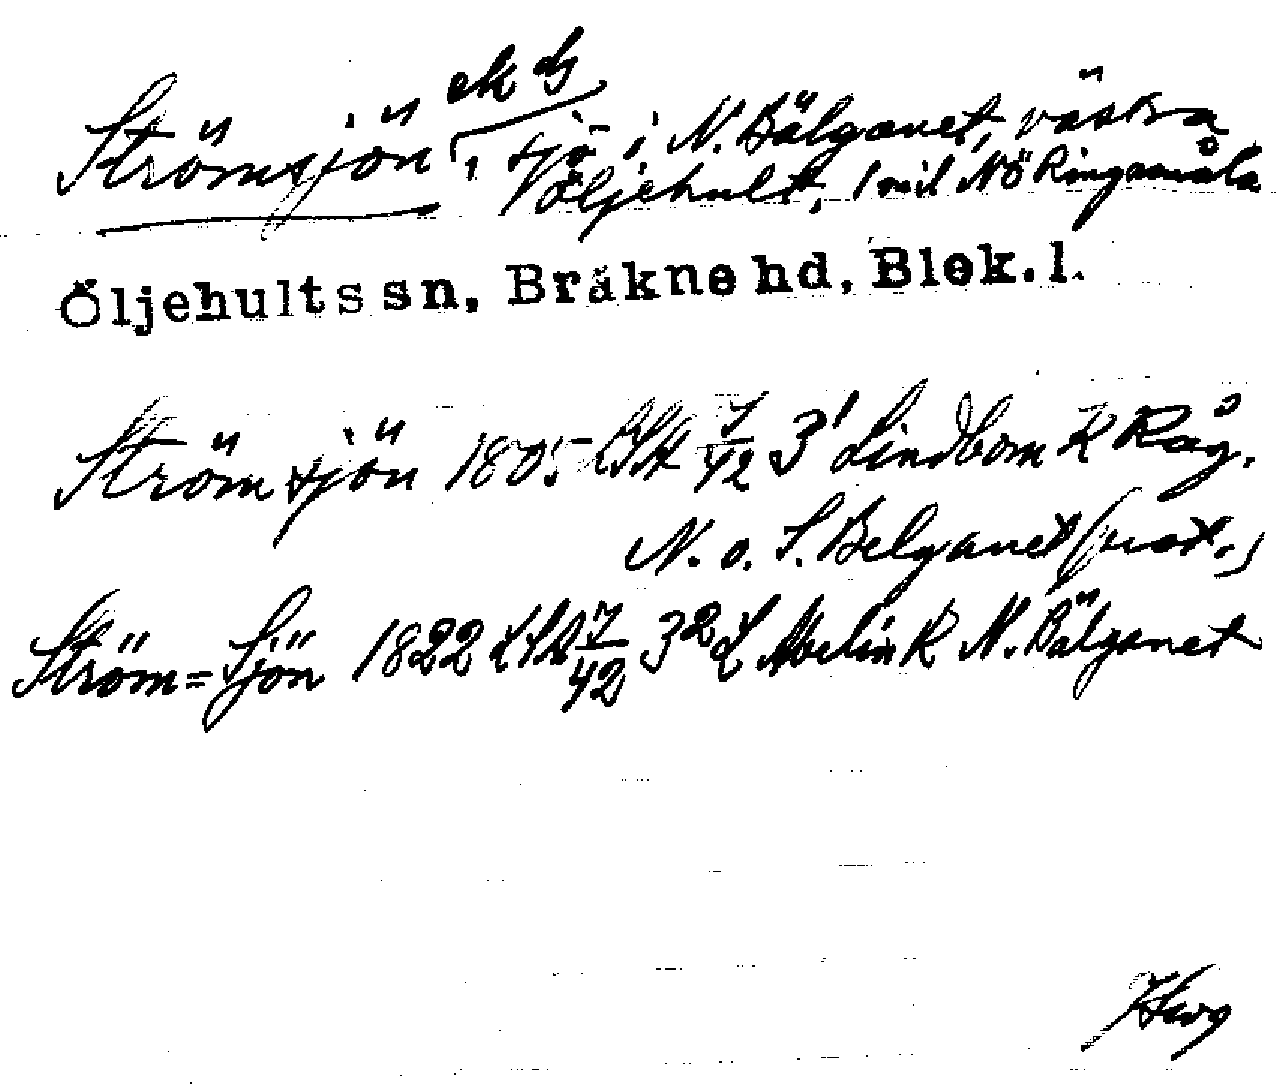 ek G
Strömsjön, sjö i N. Bälganet, västra
Öljehult, 1 mil NÖ Ringamåla
Öljehults sn, Bräkne hd, Blek. l.
Strömsjön 1805 LSA Ö/42 3¹ Lindbom K Råg.
N. o. S. Belganet (prot.)
Ström=Sjön 1822 LSA Ö/42 3² L Melin K N. Bälganet